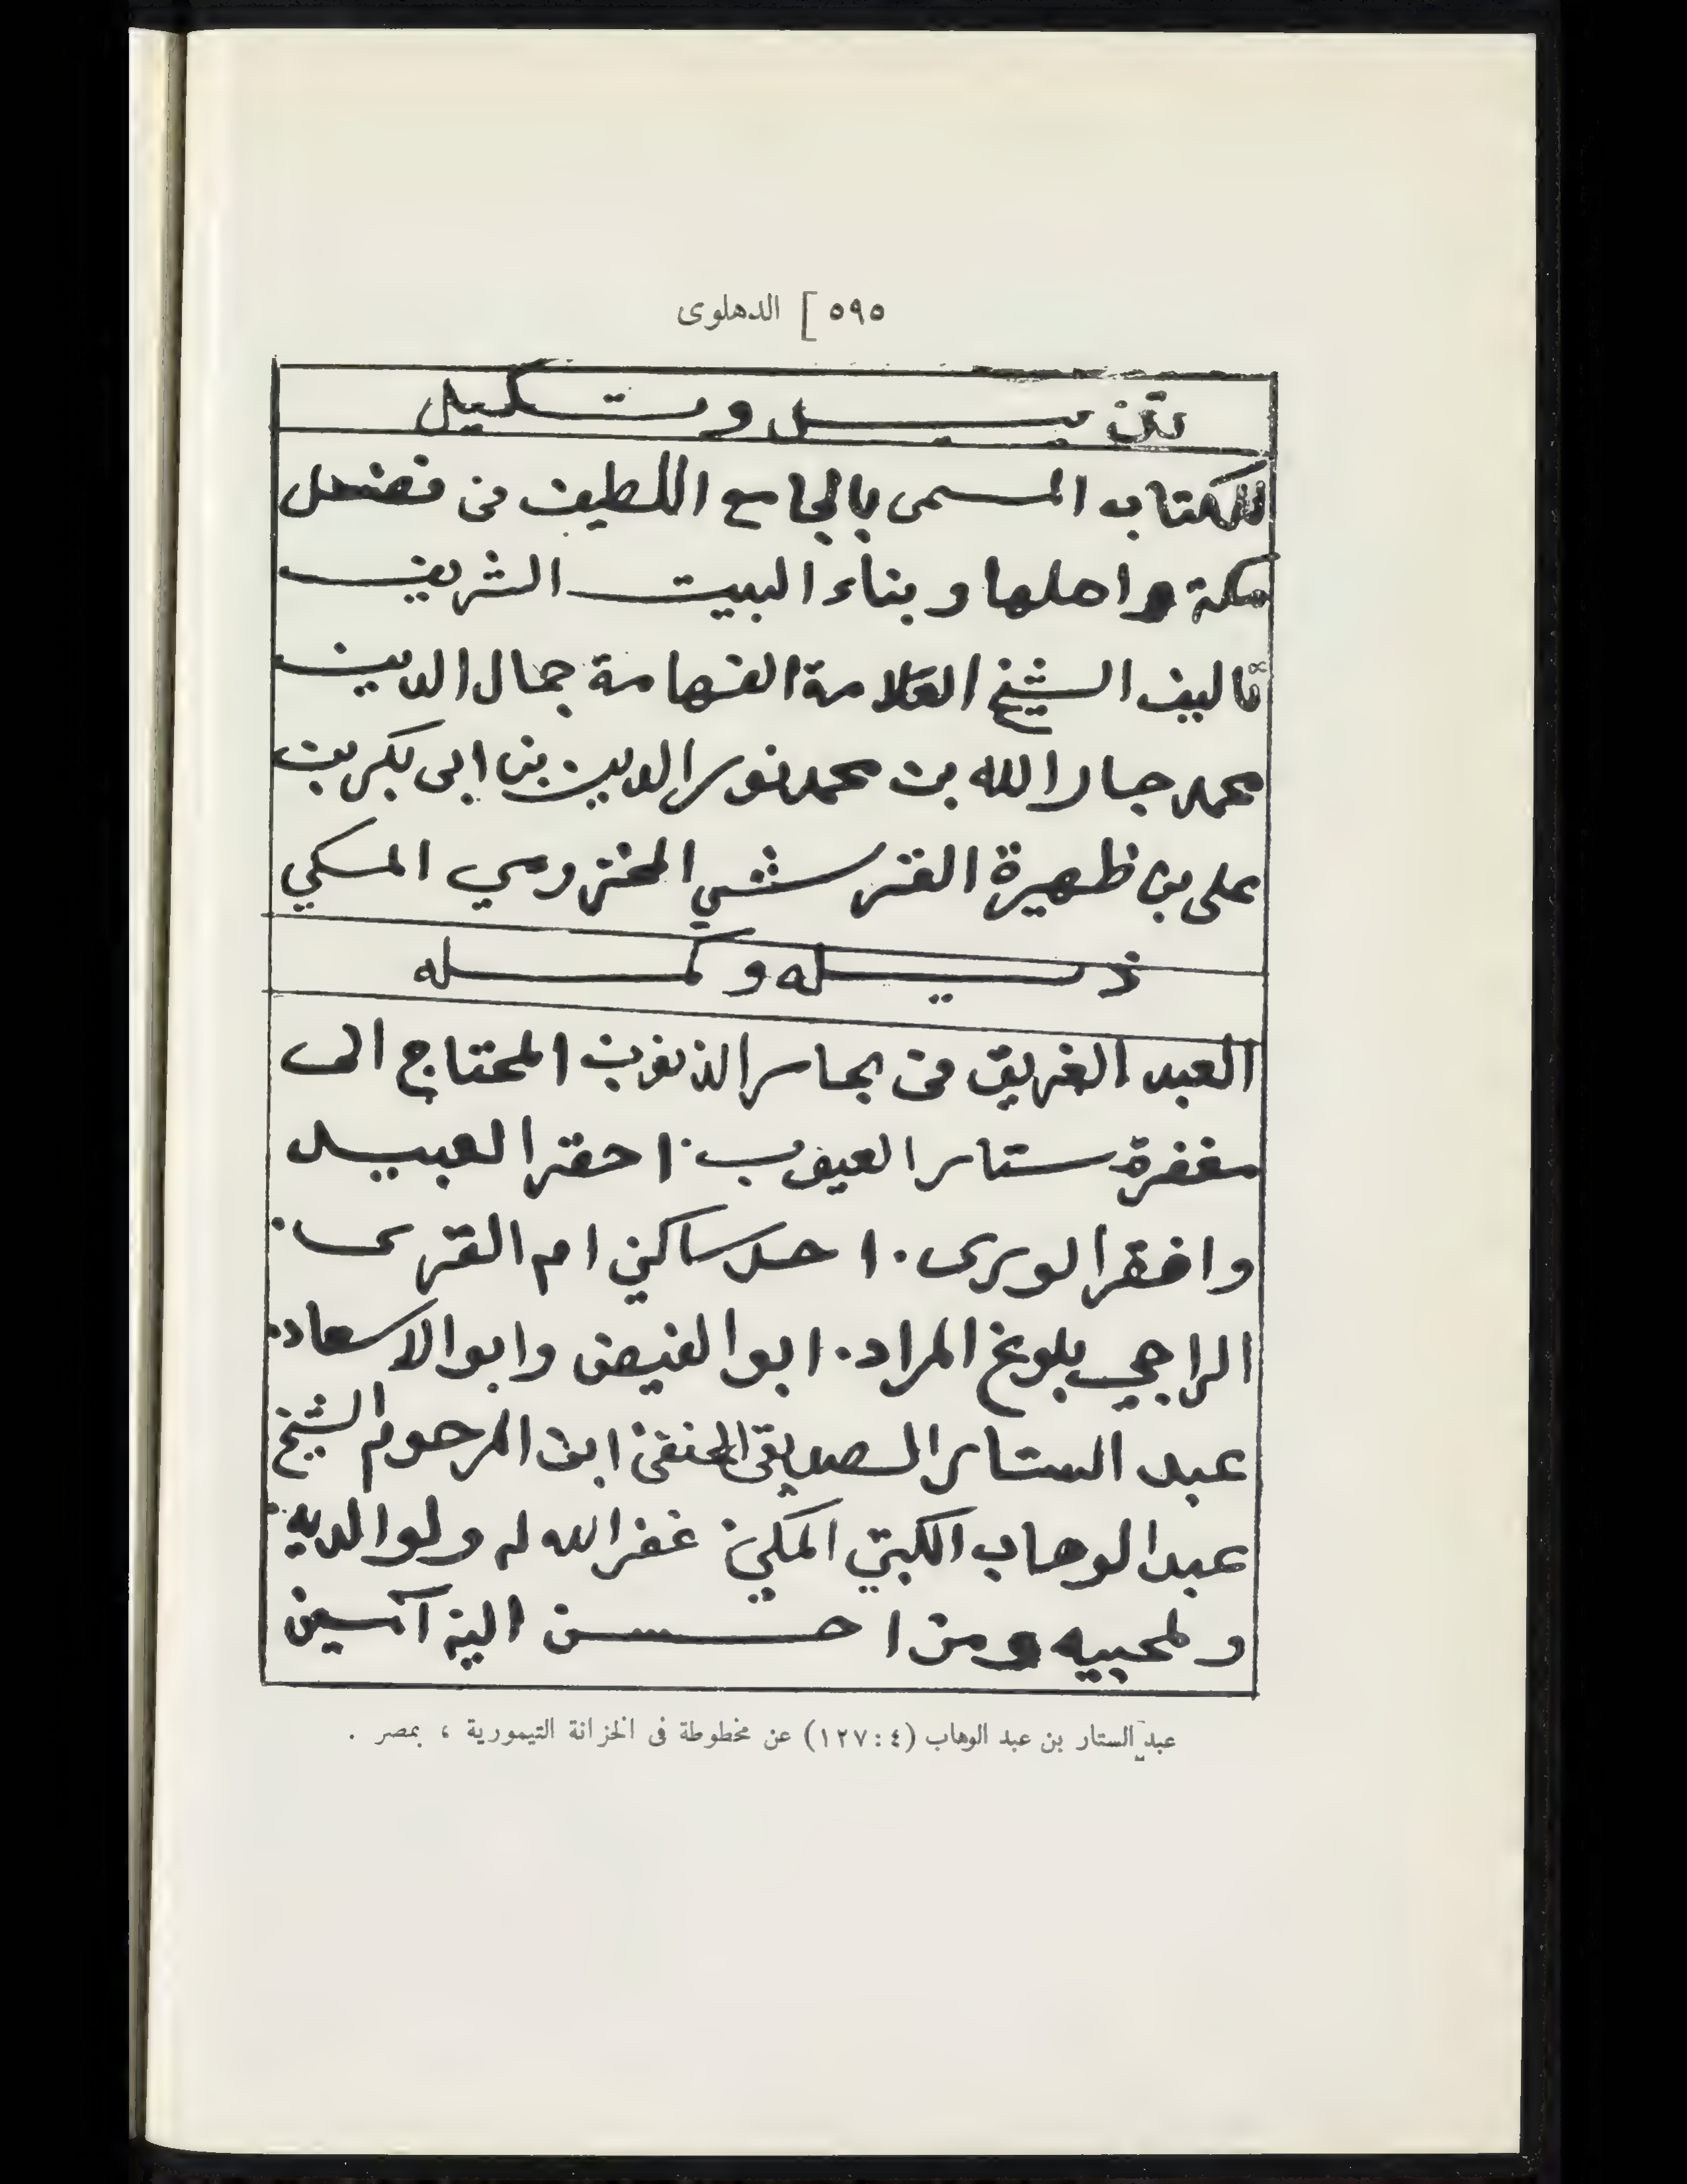 ٥٩٥ [ الدهلوى
تذييل وتكيل
للكتاب المسمى بالجامع اللطيف فى فضل
مكة واهلها وبناء البيت الشريف
تأليف الشيخ العلامة الفهامة جمال الدين
محمد جار الله بن محمد نور الدين بن ابى بكر بن
على بن ظهيرة القرشي المخزومي المكي
ذيله وكمله
العبد الغريق فى بحار الذنوب المحتاج الى
مغفرة ستار العيوب . احقر العبيد
وافقر الورى . احد ساكني ام القرى .
الراجي بلوغ المراد . ابو الفيض وابو الاسعاد .
عبد الستار الصديقى الحنفى ابن المرحوم الشيخ
عبد الوهاب الكبتي المكي غفر الله له ولوالديه
ولمحبيه ومن احسن اليه آمين
عبد الستار بن عبد الوهاب (٤ : ١٢٧) عن مخطوطة فى الخزانة التيمورية ، بمصر .